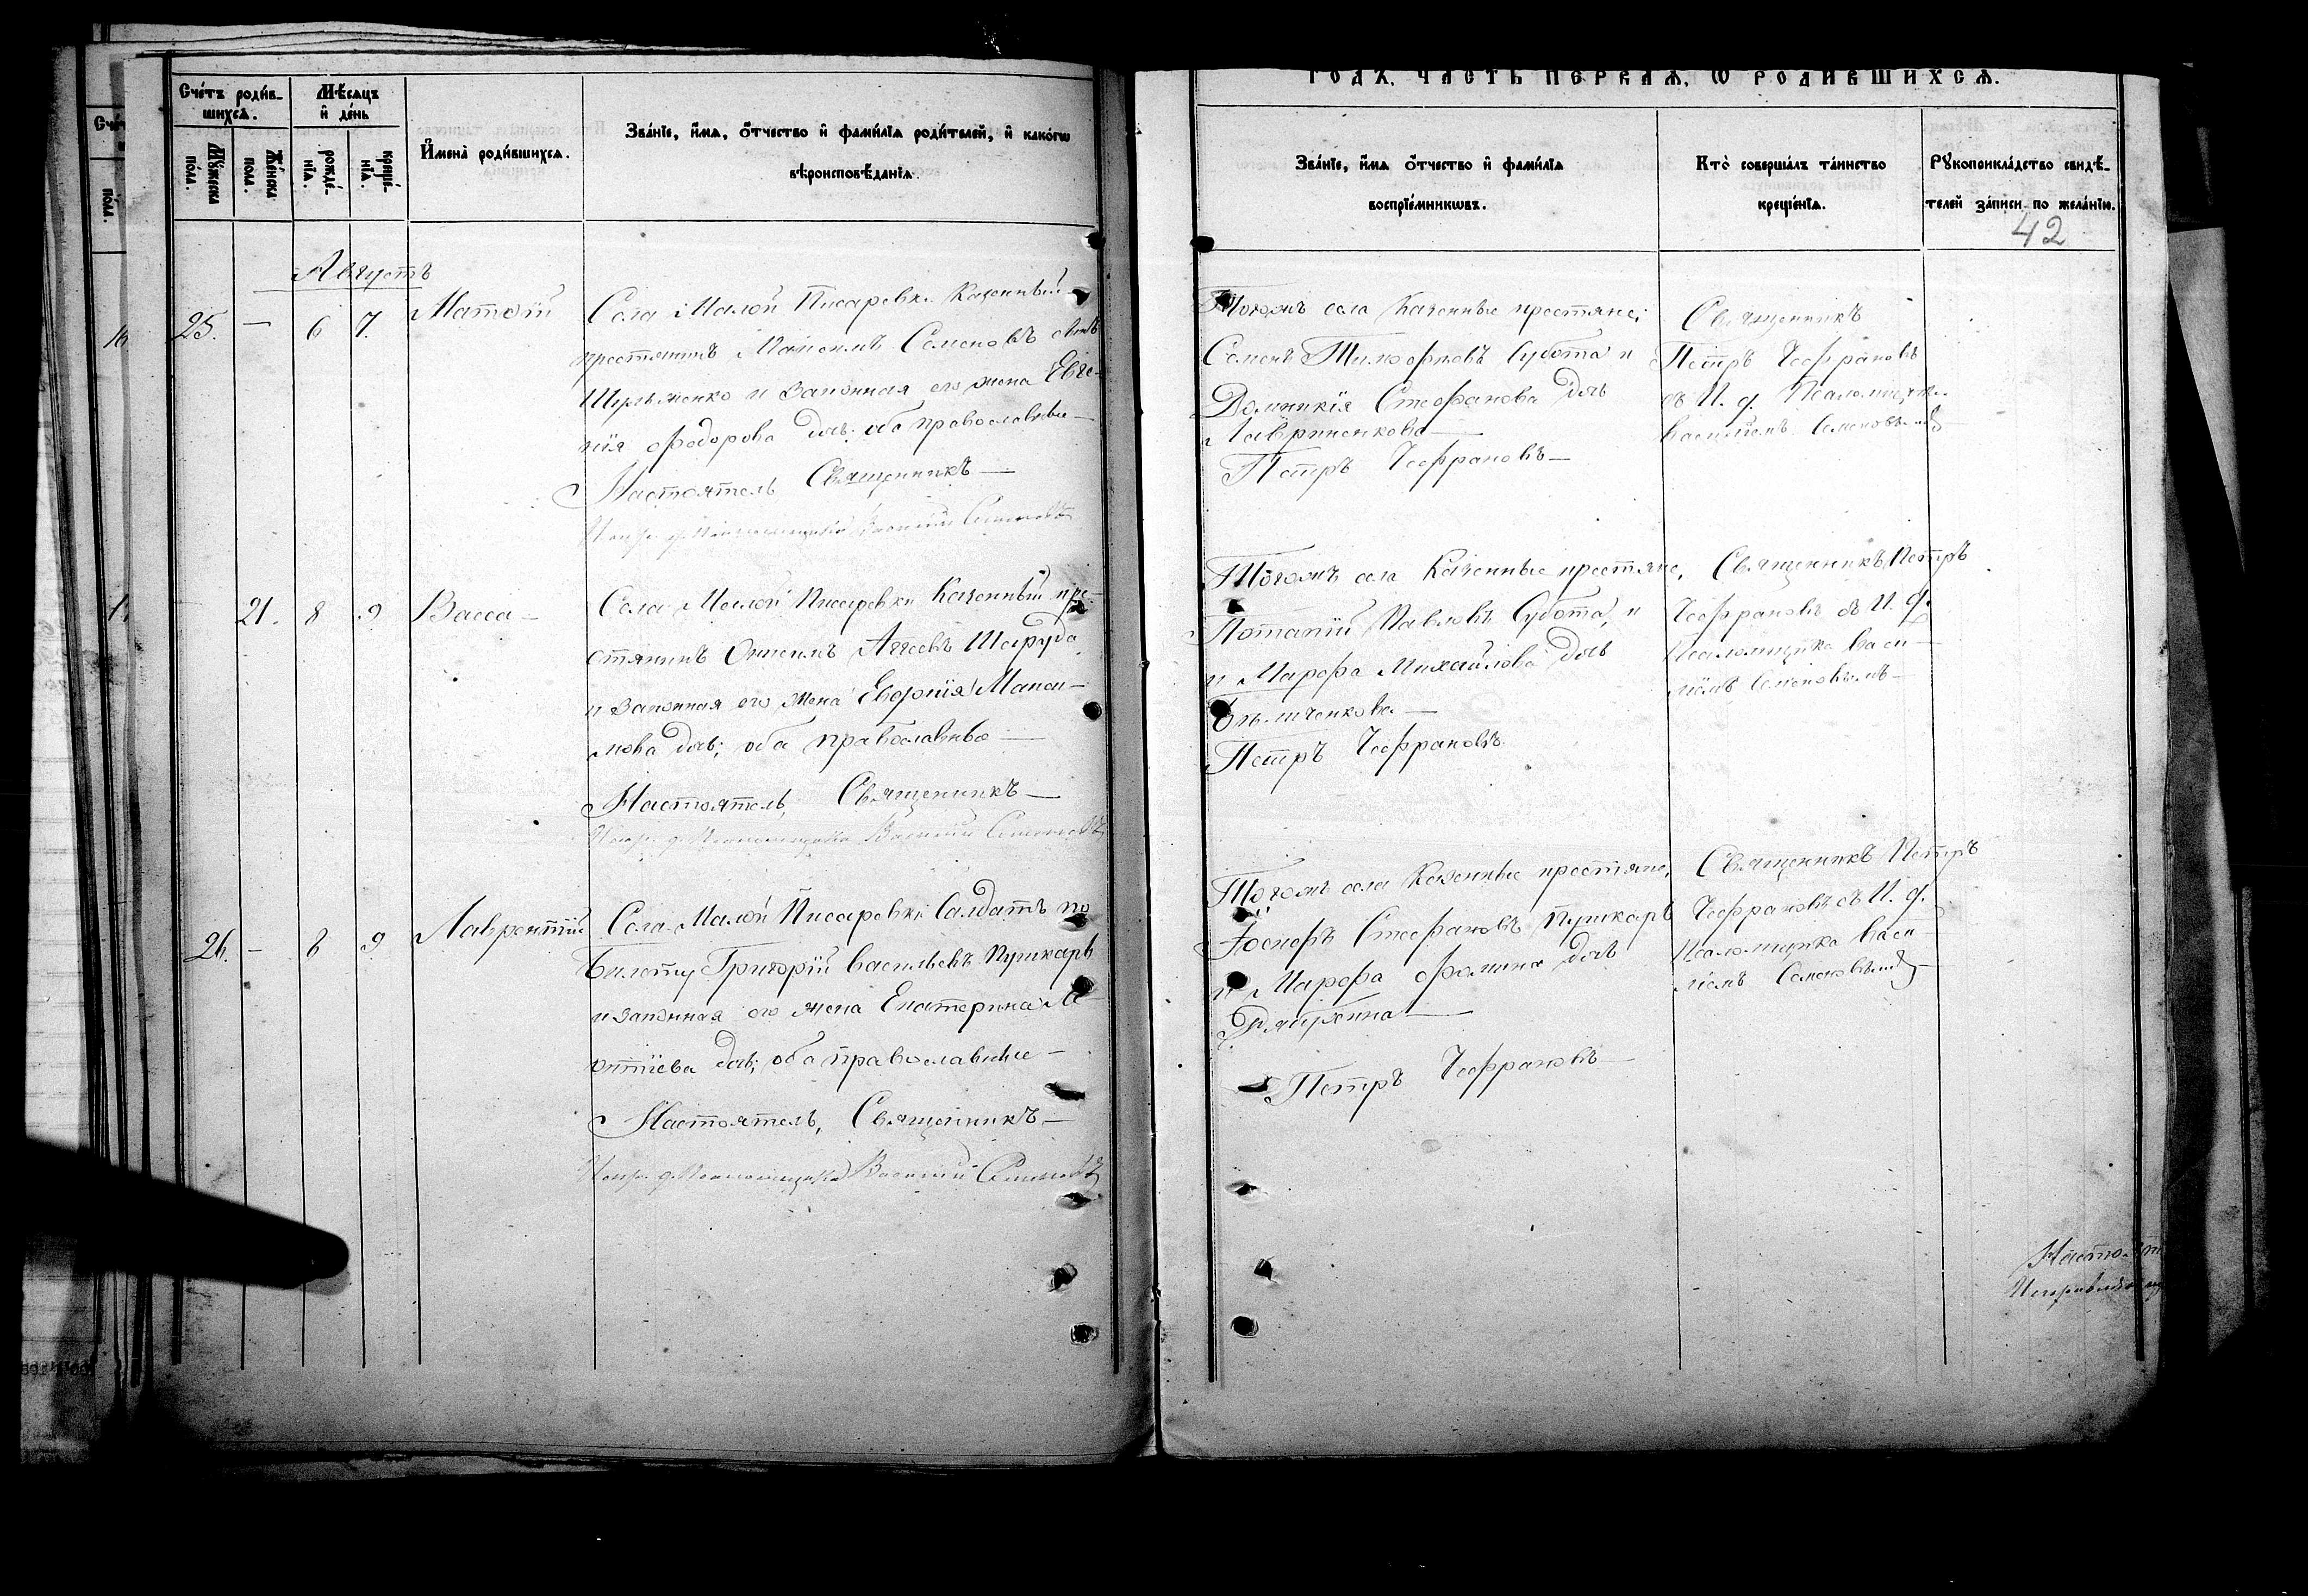 годъ, часть первая, ѡ родившихся.
Счетъ родив-
шихся.
Мѣсяцъ
и день
Мужеска
пола.
Женска
пола.
рожде-
нія.
креще-
нія.
Имена родившихся.
Званіе, имя, отчество и фамилія родителей, и какогѡ
вѣроисповѣданія.
Званіе, имя отчество и фамилія
воспріемниковъ.
Кто совершалъ таинство
крещенія.
Рукоприкладство свидѣ-
телей записи по желанію.
42
Августъ
25. — 6 7. Матвій
Села Малой Писаревки Казенный
крестянинъ Максимъ Семеновъ сынъ
и законная его жена Евге-
нія Федорова дочь; оба православные —
Настоятель Священникъ —
Василій Семеновъ
Тогожъ села Казенные крестяне;
Семенъ Тимофеевъ Субота и
Домникія Стефанова дочь
Лавриненкова —
Петръ Чефрановъ —
Священникъ
Петръ Чефрановъ
съ И. д. Псаломщика
Василіемъ Семеновымъ
21. 8 9 Васса —
Села Малой Писаревки Казенный кре-
стянинъ Онисимъ Аггеевъ Шкарупа
и законная его жена Евфимія Макси-
мова дочь; оба православные —
Настоятель, Священникъ —
Псаломщика Василій Семеновъ
Тогожъ села Казенные крестяне,
Потапій Павловъ Субота, и
и Марфа Михайлова дочь
Петръ Чефрановъ.
Священникъ Петръ
Чефрановъ съ И. д.
Псаломщика Васи-
ліемъ Семеновымъ —
26. — 8 9 Лаврентій
Села Малой Писаревки Салдатъ по
билету Григорій Васильевъ Пушкарь
и законная его жена Екатерина Ле-
онтіева дочь; оба православные —
Настоятель, Священникъ —
Псаломщика Василій Семеновъ
Тогожъ села Казенные крестяне,
Іосифъ Стефановъ Пушкарь
и Марфа Фомина дочь
Петръ Чефрановъ —
Священникъ Петръ
Чефрановъ съ И. д.
Псаломщика Васи-
ліемъ Семеновымъ —